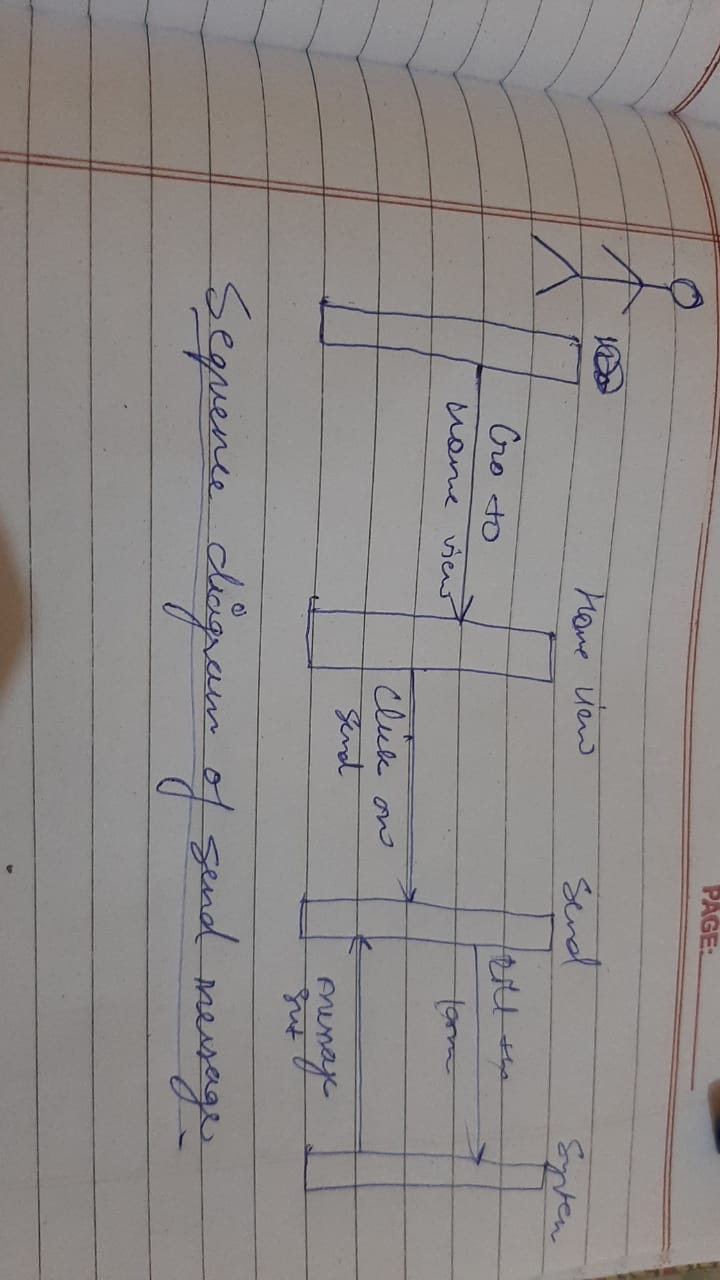 PAGE:
Home view
Send
System
Go to
Home view
Click on
send
Fill the
form
message
sent
Sequence diagram of send message